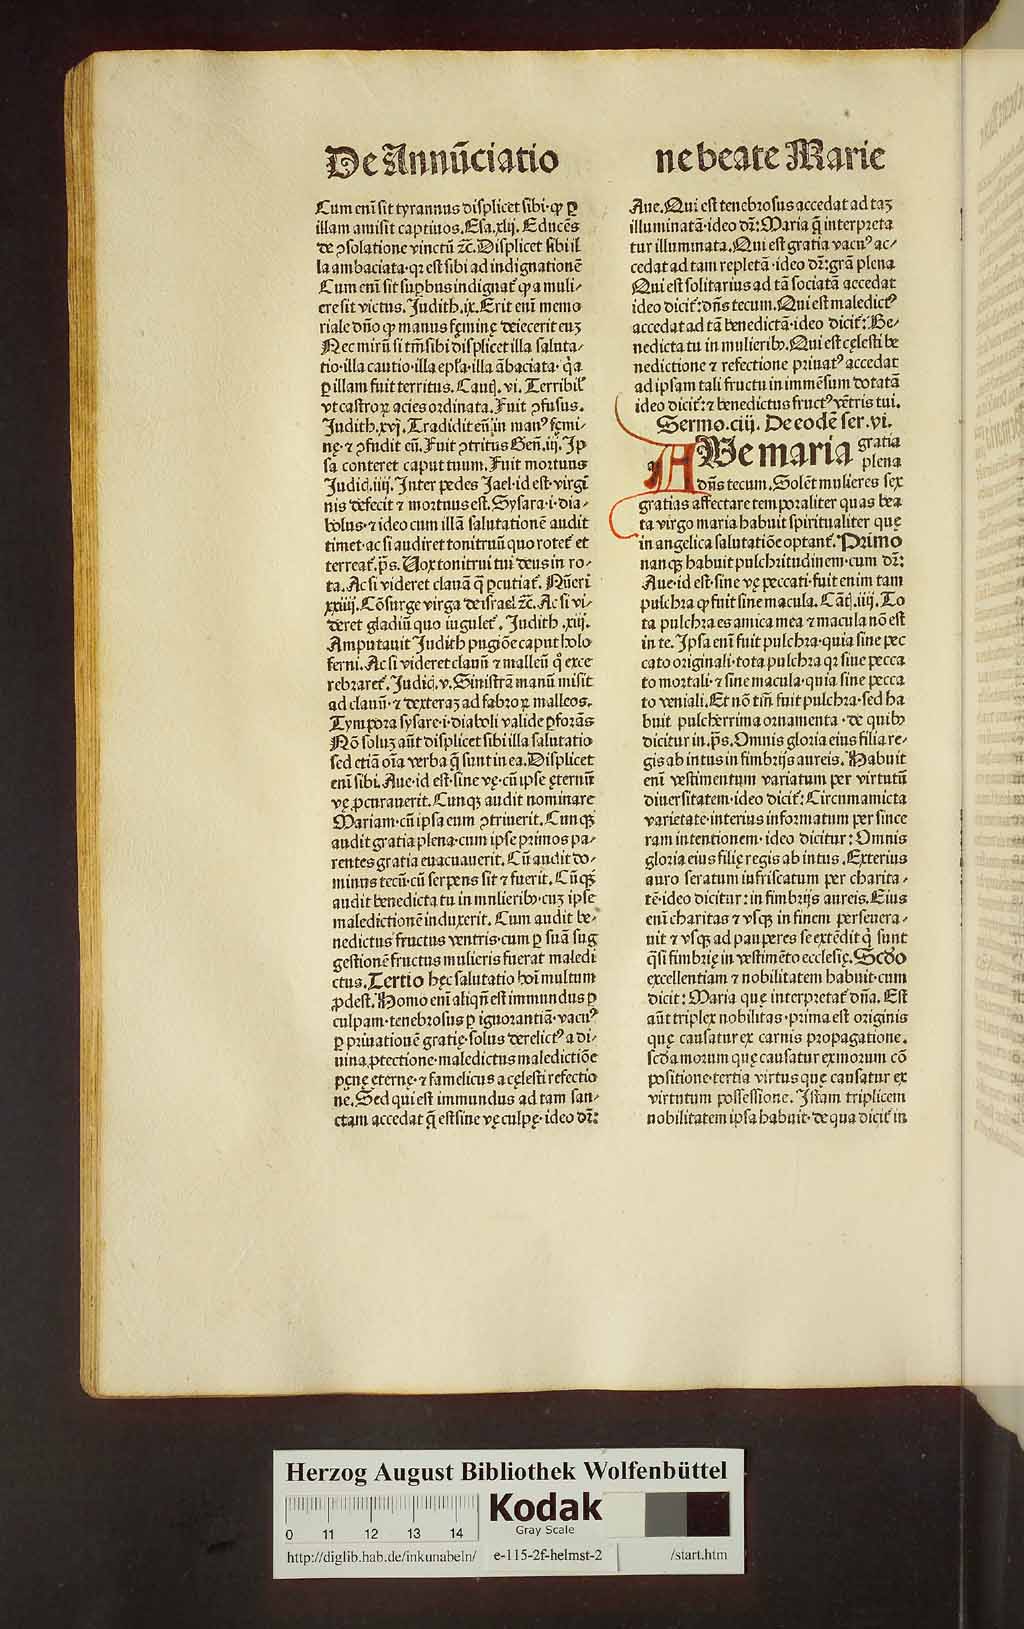 De Annūciatio
Cum enī sit tyrannus displicet sibi· ꝙ ꝑ
illam amisit captiuos. Esa.xlij. Educēs
de ꝯsolatione vinctū ⁊c̄. Displicet sibi il
la ambaciata·qꝛ est sibi ad indignationē
Cum enī sit suꝑbus indignat᷑ ꝙ a muli-
ere sit victus. Judith.ix. Erit enī memo
riale dn̄o ꝙ manus femīnę deiecerit euꝫ
Nec mirū si tm̄ sibi displicet illa saluta-
tio·illa cautio·illa ep̄la·illa ābaciata· q̇a
ꝑ illam fuit territus. Cantꝭ. vi. Terribilꝭ
vt castroꝝ acies ordinata. Fuit ꝯfusus.
Judith.xvj. Tradidit eū in manꝰ fęmi-
nę·⁊ ꝯfudit eū. Fuit ꝯtritus Gen̄.iij. Ip
sa conteret caput tuum. Fuit mortuus
Judiꝭ.iiij. Inter pedes Jael·id est·virgī
nis defecit ⁊ mortuus est. Sysara·i·dia-
bolus·⁊ ideo cum illā salutationē audit
timet·ac si audiret tonitruū quo rotet᷑ et
terreat᷑. p̄s. Vox tonitrui tui deus in ro-
ta. Ac si videret clauā q̄ ꝑcutiat᷑. Nūeri
xxiiij. Cōsurge virga de israel ⁊c̄. Ac si vi-
deret gladiū quo iugulet᷑. Judith .xiij.
Amputauit Judith pugiōe caput holo
ferni. Ac si videret clauū ⁊ malleū qͦ exce
rebraret᷑. Judiꝭ.v. Sinistrā manū misit
ad clauū·⁊ dexteraꝫ ad fabroꝝ malleos.
Tympora sysare·i·diaboli valide ꝑforās
Nō soluꝫ aūt displicet sibi illa salutatio
sed etiā oīa verba q̄ sunt in ea. Displicet
enī sibi. Aue·id est·sine vę·cū ipse ęternū
vę ꝓcurauerit. Cunqꝫ audit nominare
Mariam·cū ipsa eum ꝯtriuerit. Cunqꝫ
audit gratia plena·cum ipse primos pa-
rentes gratia euacuauerit. Cū audit do-
minus tecū·cū serpens sit ⁊ fuerit. Cūqꝫ
audit benedicta tu in mulieribꝰ·cuꝫ ipse
maledictionē induxerit. Cum audit be-
nedictus fructus ventris·cum ꝑ suā sug
gestionē fructus mulieris fuerat maledi
ctus. Tertio hęc salutatio hoī multum
ꝓdest. Homo enī aliqn̄ est immundus ꝑ
culpam·tenebrosus ꝑ ignorantiā·vacuꝰ
ꝑ priuationē gratię·solus derelictꝰ a di-
uina ꝓtectione·maledictus maledictiōe
pęnę ęternę·⁊ famelicus a cęlesti refectio
ne. Sed qui est immundus ad tam san-
ctam accedat q̄ est sine vę culpę·ideo dr̄:
ne beate Marie
Aue. Qui est tenebrosus accedat ad taꝫ
illuminatā·ideo dr̄: Maria q̄ interpreta
tur illuminata. Qui est gratia vacuꝰ ac-
cedat ad tam repletā·ideo dr̄: grā plena
Qui est solitarius ad tā sociatā accedat
ideo dicit᷑: dn̄s tecum. Qui est maledictꝰ
accedat ad tā benedictā·ideo dicit᷑: Be-
nedicta tu in mulieribꝰ. Qui est cęlesti be
nedictione ⁊ refectione priuatꝰ accedat
ad ipsam tali fructu in immēsum dotatā
ideo dicit᷑: ⁊ benedictus fructꝰ vētris tui.
Sermo.ciij. De eodē ser.vi.
AVe maria gratia
plena
dn̄s tecum. Solēt mulieres sex
gratias affectare temporaliter quas bea
ta virgo maria habuit spiritualiter quę
in angelica salutatiōe optant᷑. Primo
nanqꝫ habuit pulchritudinem·cum dr̄:
Aue·id est·sine vę peccati·fuit enim tam
pulchra ꝙ fuit sine macula. Cāꝭ.iiij. To
ta pulchra es amica mea ⁊ macula nō est
in te. Ipsa enī fuit pulchra·quia sine pec
cato originali·tota pulchra qꝛ sine pecca
to mortali·⁊ sine macula·quia sine pecca
to veniali. Et nō tm̄ fuit pulchra·sed ha
buit pulcherrima ornamenta·de quibꝰ
dicitur in.p̄s. Omnis gloria eius filia re-
gis ab intus in fimbrijs aureis. Habuit
enī vestimentum variatum per virtutū
diuersitatem·ideo dicit᷑: Circumamicta
varietate·interius informatum per since
ram intentionem·ideo dicitur: Omnis
gloria eius filię regis ab intus. Exterius
auro seratum iufriscatum per charita-
tē·ideo dicitur: in fimbrijs aureis. Eius
enī charitas ⁊ vsqꝫ in finem perseuera-
uit ⁊ vsqꝫ ad pauperes se extēdit q̇ sunt
q̄si fimbrię in vestimēto ecclesię. Scd̄o
excellentiam ⁊ nobilitatem habuit·cum
dicit: Maria quę interpretat᷑ dn̄a. Est
aūt triplex nobilitas·prima est originis
quę causatur ex carnis propagatione.
scd̄a morum quę causatur ex morum cō
positione·tertia virtus quę causatur ex
virtutum possessione. Istam triplicem
nobilitatem ipsa habuit·de qua dicit᷑ in
Herzog August Bibliothek Wolfenbüttel
Kodak
Gray Scale
0 11 12 13 14
http://diglib.hab.de/inkunabeln/ e-115-2f-helmst-2 /start.htm